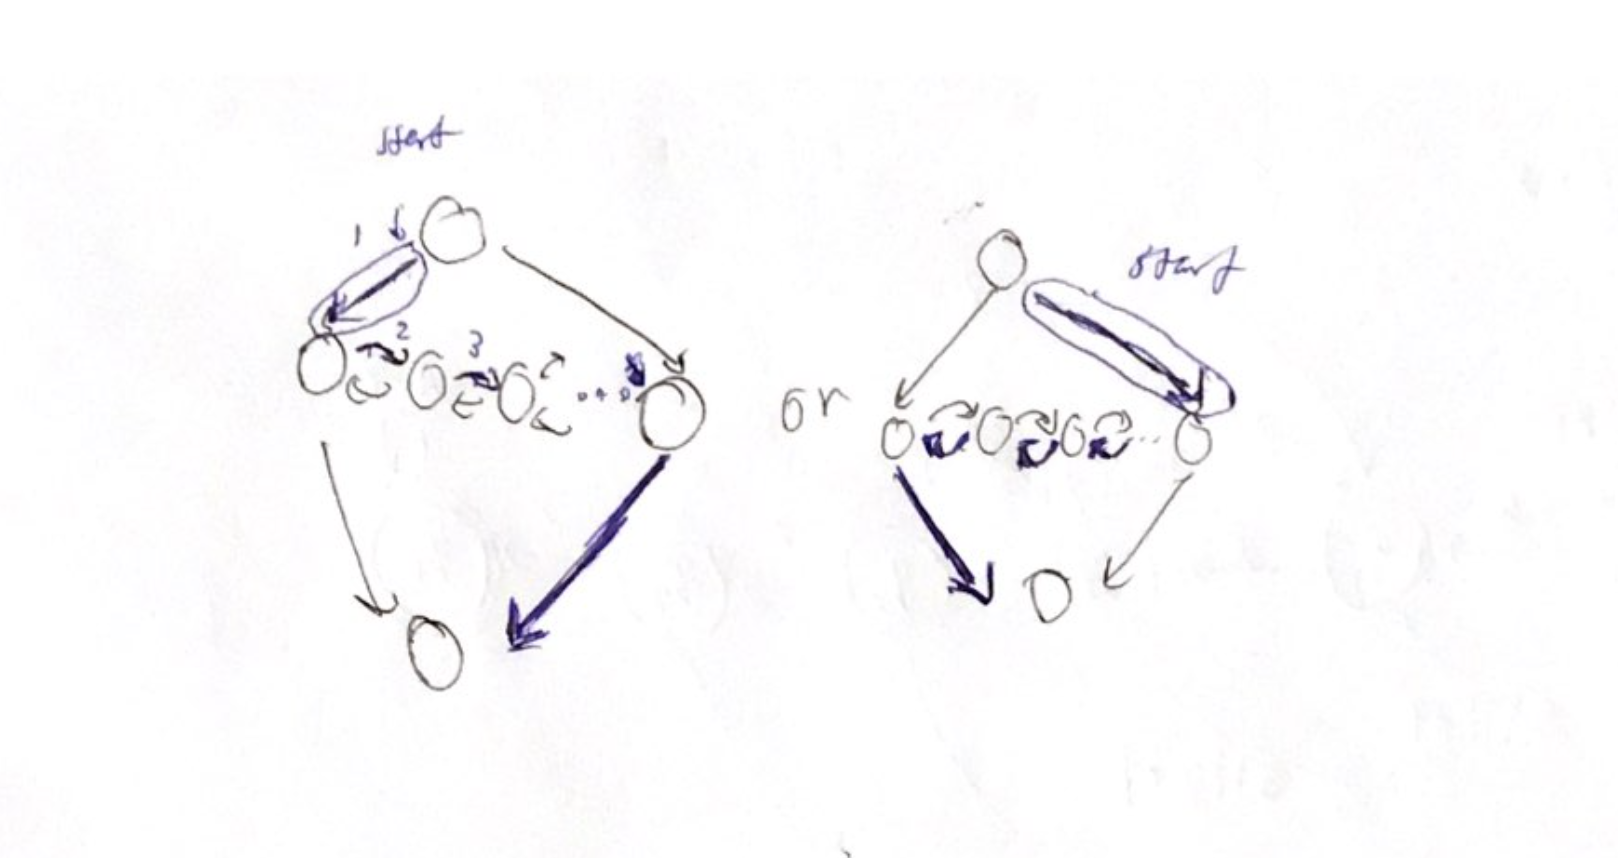 start
1
2
3
or
start